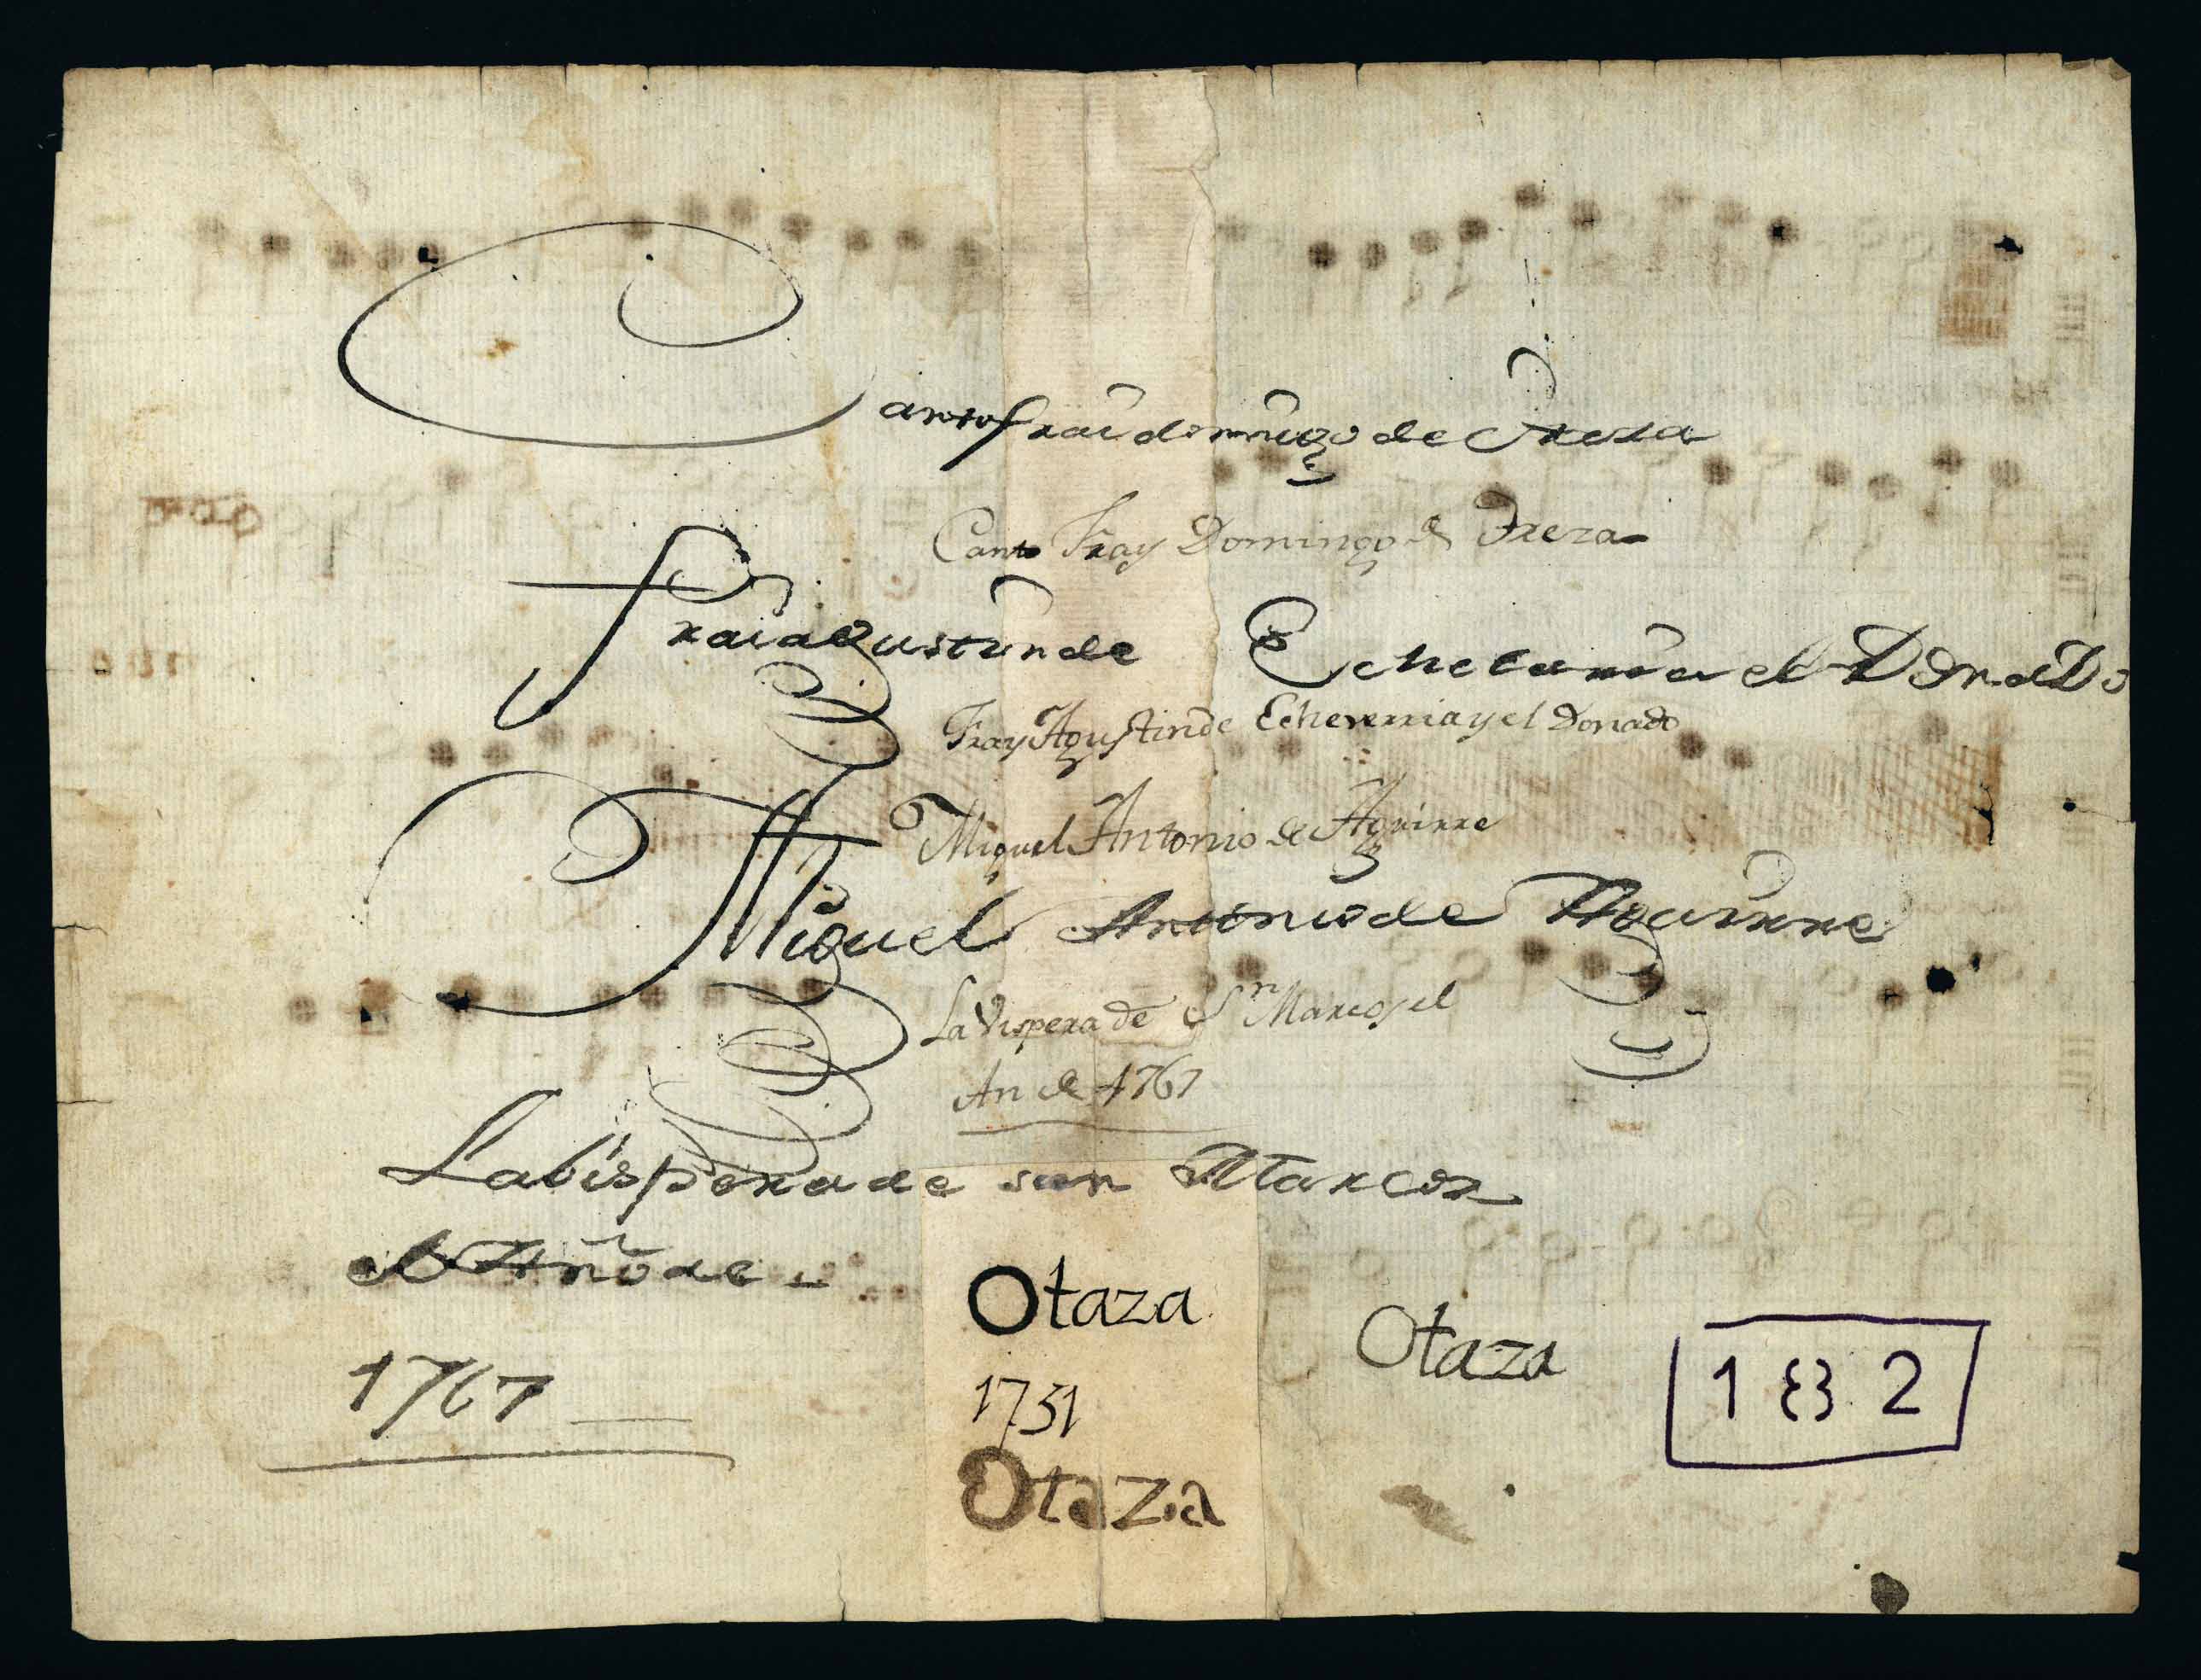 Canto frai domingo de Ereza
Canto Fray Domingo de Ereza
frai agustin de Echebarria el DonaDo
Fray Agustin de Echeverria y el Donado
Miguel Antonio de Aguirre
Miguel Antonio de Aguirre
La Vispera de Sn Marcos el
An de 1767
La bispera de san Marcos
el Año de
1767
Otaza
1751
Otaza
Otaza
1832